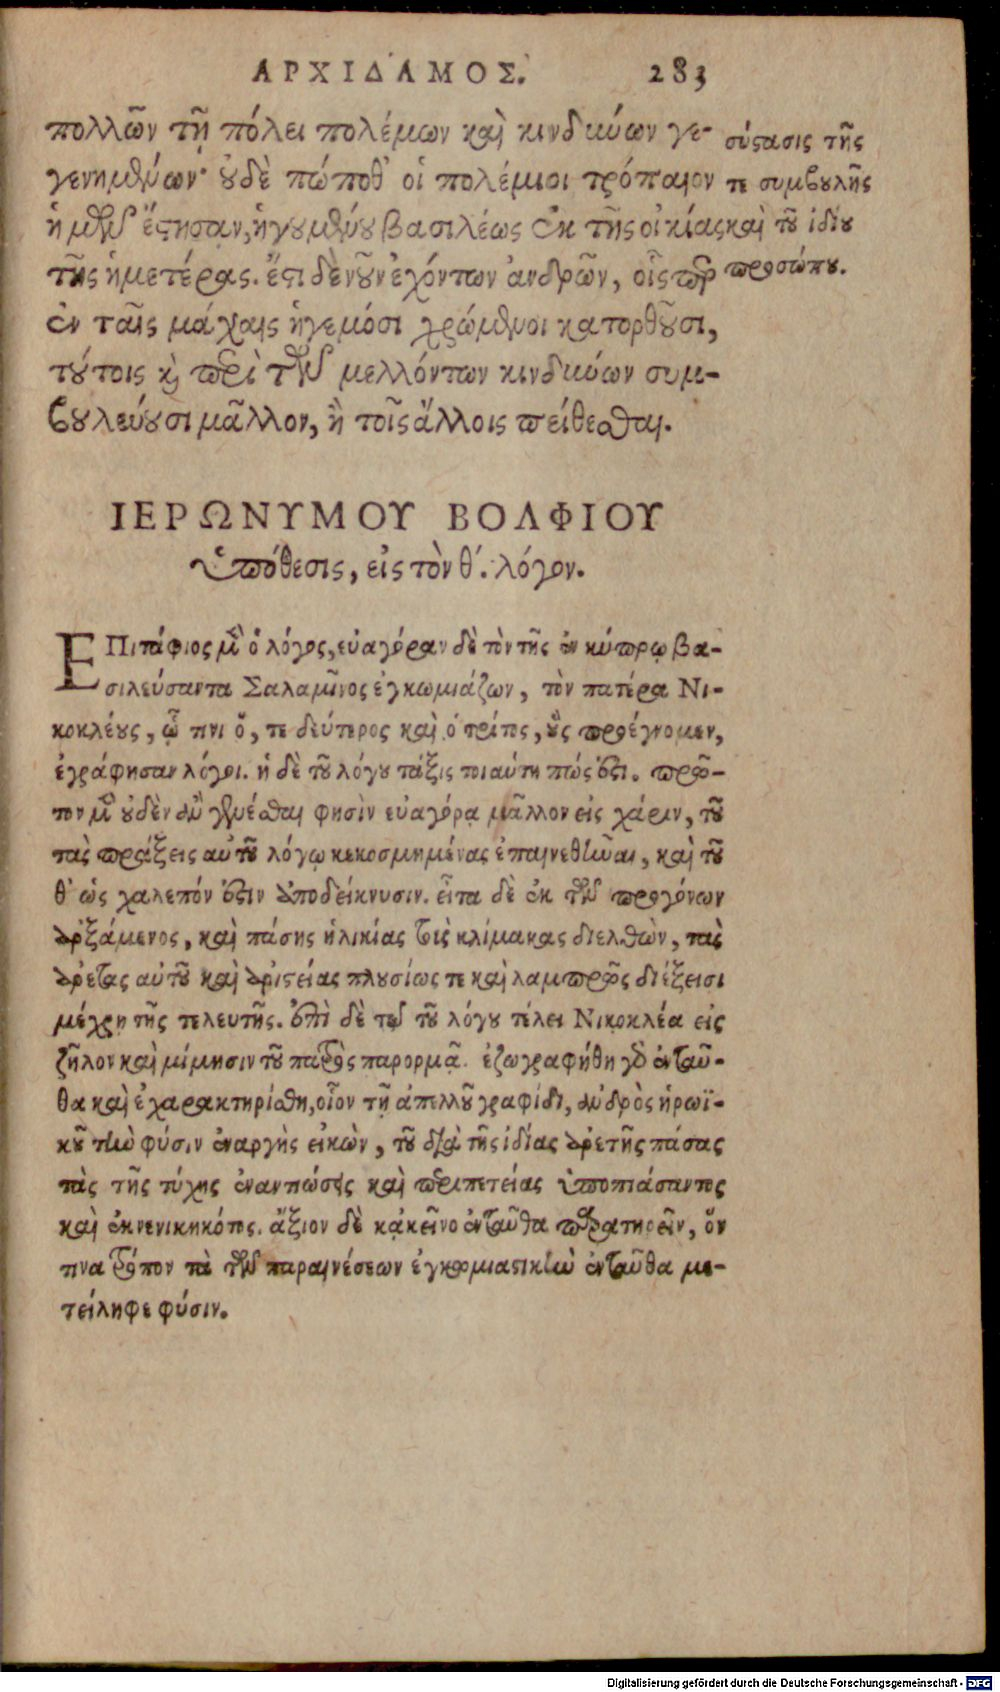 ΑΡΧΙΔΑΜΟΣ. 283
πολλῶν τῇ πόλει πολέμων καὶ κινδύνων γε-
γενημένων· οὐδὲ πώποθ' οἱ πολέμιοι τρόπαιον
ἡμῶν ἔστησαν, ἡγουμένου βασιλέως ἐκ τῆς οἰκίας
τῆς ἡμετέρας. ἔστι δὲ νοῦν ἐχόντων ἀνδρῶν, οἷς περ
ἐν ταῖς μάχαις ἡγεμόσι χρώμενοι κατορθοῦσι,
τούτοις καὶ περὶ τῶν μελλόντων κινδύνων συμ-
βουλεύουσι μᾶλλον, ἢ τοῖς ἄλλοις πείθεσθαι.
σύστασις τῆς
τε συμβουλῆς
καὶ τοῦ ἰδίου
προσώπου.
ΙΕΡΩΝΥΜΟΥ ΒΟΛΦΙΟΥ
ὑπόθεσις, εἰς τὸν θ΄. λόγον.
ΕΠιτάφιος μὲν ὁ λόγος, εὐαγόραν δὲ τὸν τῆς ἐν κύπρῳ βα-
σιλεύσαντα Σαλαμῖνος ἐγκωμιάζων, τὸν πατέρα Νι-
κοκλέους, ᾧ τινι ὅ, τε δεύτερος καὶ ὁ τρίτος, οὓς προέγνομεν,
ἐγράφησαν λόγοι. ἡ δὲ τοῦ λόγου τάξις τοιαύτη πώς ἐστι. πρῶ-
τον μὲν οὐδὲν ἂν γενέσθαι φησὶν εὐαγόρᾳ μᾶλλον εἰς χάριν, τοῦ
τὰς πράξεις αὐτοῦ λόγῳ κεκοσμημένας ἐπαινεθῆναι, καὶ τοῦ
θ' ὡς χαλεπόν ἐστιν ὑποδείκνυσιν. εἶτα δὲ ἐκ τῶν προγόνων
ἀρξάμενος, καὶ πάσης ἡλικίας τὰς κλίμακας διελθὼν, τὰς
ἀρετὰς αὐτοῦ καὶ ἀριστείας πλουσίως τε καὶ λαμπρῶς διέξεισι
μέχρι τῆς τελευτῆς. ἐπὶ δὲ τῷ τοῦ λόγου τέλει Νικοκλέα εἰς
ζῆλον καὶ μίμησιν τοῦ πατρὸς παρορμᾷ. ἐζωγραφήθη γὰρ ἐνταῦ-
θα καὶ ἐχαρακτηρίσθη, οἷον τῇ ἀπελλοῦ γραφίδι, ἀνδρὸς ἡρωϊ-
κοῦ τὴν φύσιν ἐναργὴς εἰκὼν, τοῦ διὰ τῆς ἰδίας ἀρετῆς πάσας
τὰς τῆς τύχης ἐναντιώσεις καὶ περιπετείας ὑποπιάσαντος
καὶ ἐκνενικηκότος. ἄξιον δὲ κἀκεῖνο ἐνταῦθα παρατηρεῖν, ὅν
τινα τρόπον τὰ τῶν παραινέσεων ἐγκωμιαστικὴν ἐνταῦθα με-
τείληφε φύσιν.
Digitalisierung gefördert durch die Deutsche Forschungsgemeinschaft - DFG